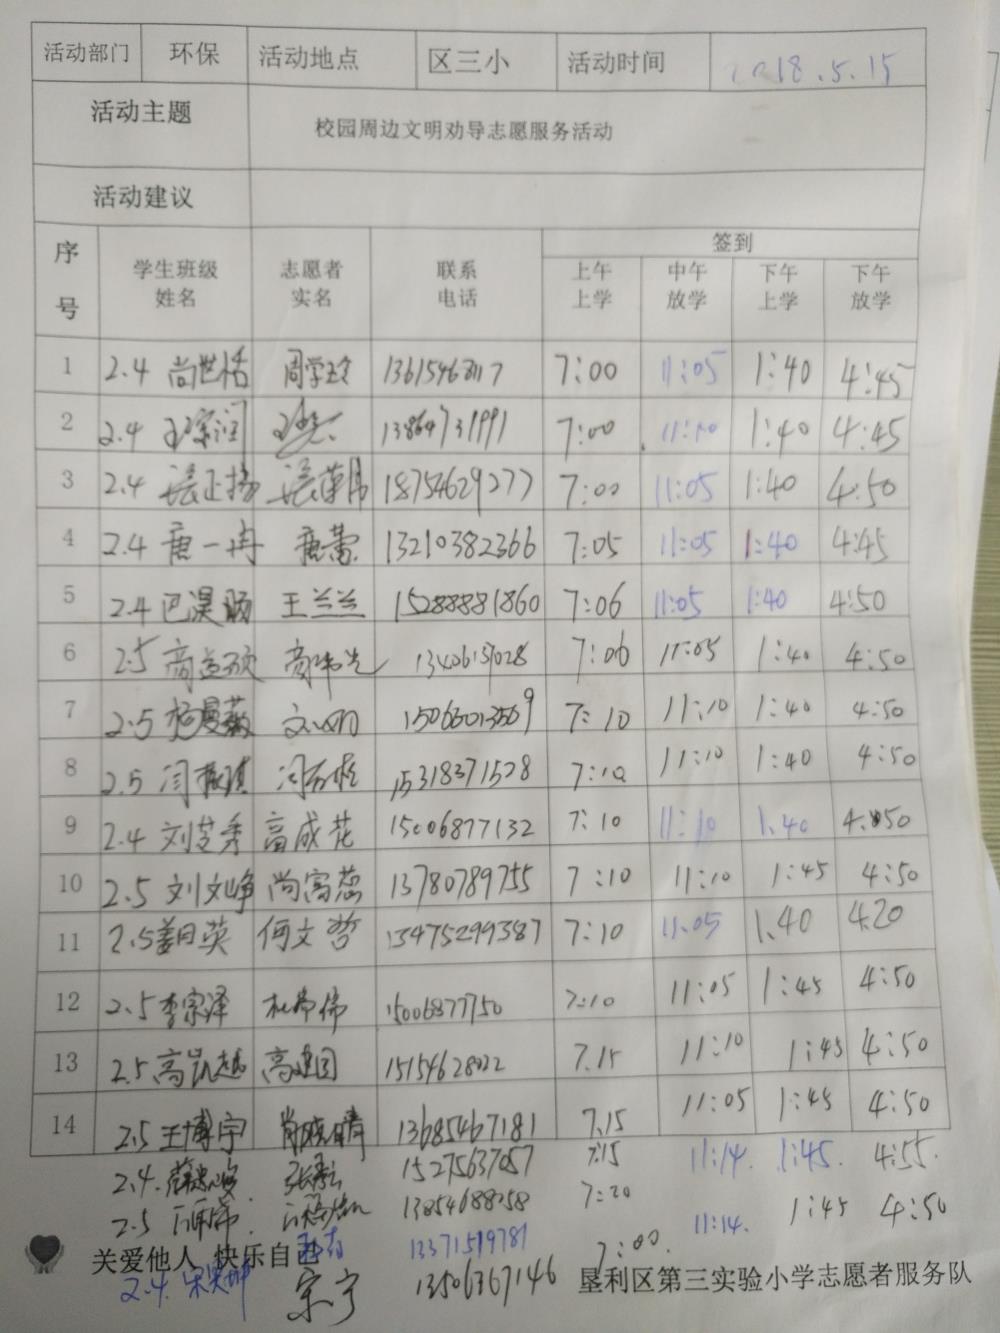 活动部门 环保 活动地点 区三小 活动时间 2018.5.15
活动主题 校园周边文明劝导志愿服务活动
活动建议
序号 学生班级姓名 志愿者实名 联系电话 签到
上午上学 中午放学 下午上学 下午放学
1 2.4 尚世恬 周学玲 7:00 11:05 1:40 4:45
2 2.4 13864731991 7:00 11:10 1:40 4:45
3 2.4 18754629277 7:00 11:05 1:40 4:50
4 2.4 唐一冉 唐蕾 13210382366 7:05 11:05 1:40 4:45
5 2.4 王兰兰 15288881860 7:06 11:05 1:40 4:50
6 2.5 13406137028 7:06 11:05 1:40 4:50
7 2.5 杨曼薇 15066013569 7:10 11:10 1:40 4:50
8 2.5 15318371528 7:10 11:10 1:40 4:50
9 2.4 刘芝秀 高成花 15006877132 7:10 11:10 1.40 4:50
10 2.5 刘文峥 尚富蕊 13780789755 7:10 11:10 1:45 4:50
11 2.5 姜日英 何文哲 13475299387 7:10 11:05 1.40 4:20
12 2.5 李宗泽 杜希伟 15006877750 7:10 11:05 1:45 4:50
13 2.5 高凯越 高建国 15154628022 7.15 11:10 1:45 4:50
14 2.5 王博宇 肖晓晴 13685467181 7.15 11:05 1:45 4:50
2.4. 15275637057 7:15 11:14. 1:45. 4:55.
2.5 13854688058 7:20 1:45 4:50
13371519781 7:00. 11:14.
关爱他人 快乐自己
2.4. 宋宁 13506367146 垦利区第三实验小学志愿者服务队